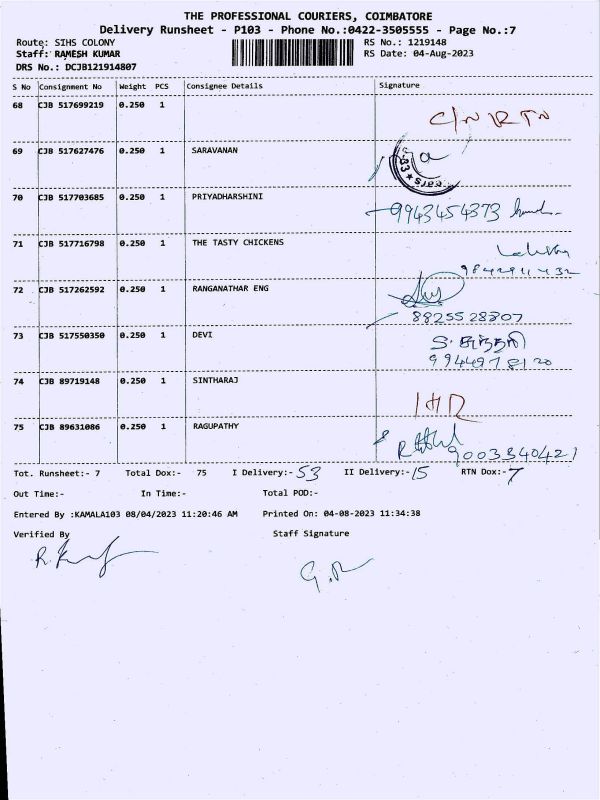 THE PROFESSIONAL COURIERS, COIMBATORE
Delivery Runsheet - P103 - Phone No.:0422-3505555 - Page No.:7
Route: SIHS COLONY RS No.: 1219148
Staff: RAMESH KUMAR RS Date: 04-Aug-2023
DRS No.: DCJB121914807
S No Consignment No Weight PCS Consignee Details Signature
68 CJB 517699219 0.250 1 C/N RTN
69 CJB 517627476 0.250 1 SARAVANAN
70 CJB 517703685 0.250 1 PRIYADHARSHINI 9943454373
71 CJB 517716798 0.250 1 THE TASTY CHICKENS
72 CJB 517262592 0.250 1 RANGANATHAR ENG
8825528807
73 CJB 517550350 0.250 1 DEVI
74 CJB 89719148 0.250 1 SINTHARAJ
75 CJB 89631086 0.250 1 RAGUPATHY
Tot. Runsheet:- 7 Total Dox:- 75 I Delivery:- 53 II Delivery:- 15 RTN Dox:- 7
Out Time:- In Time:- Total POD:-
Entered By :KAMALA103 08/04/2023 11:20:46 AM Printed On: 04-08-2023 11:34:38
Verified By Staff Signature